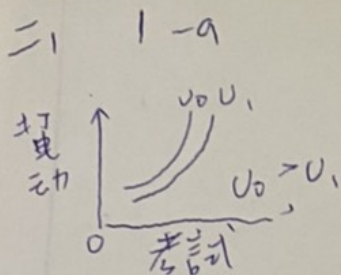 二、 1-a
U₀ U₁
打电动
U₀ > U₁
0
考試